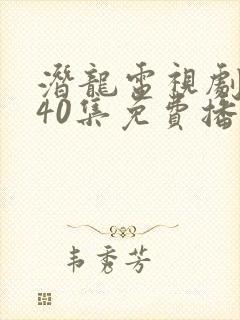 潛龍電視劇
40集免費播
韦秀芳